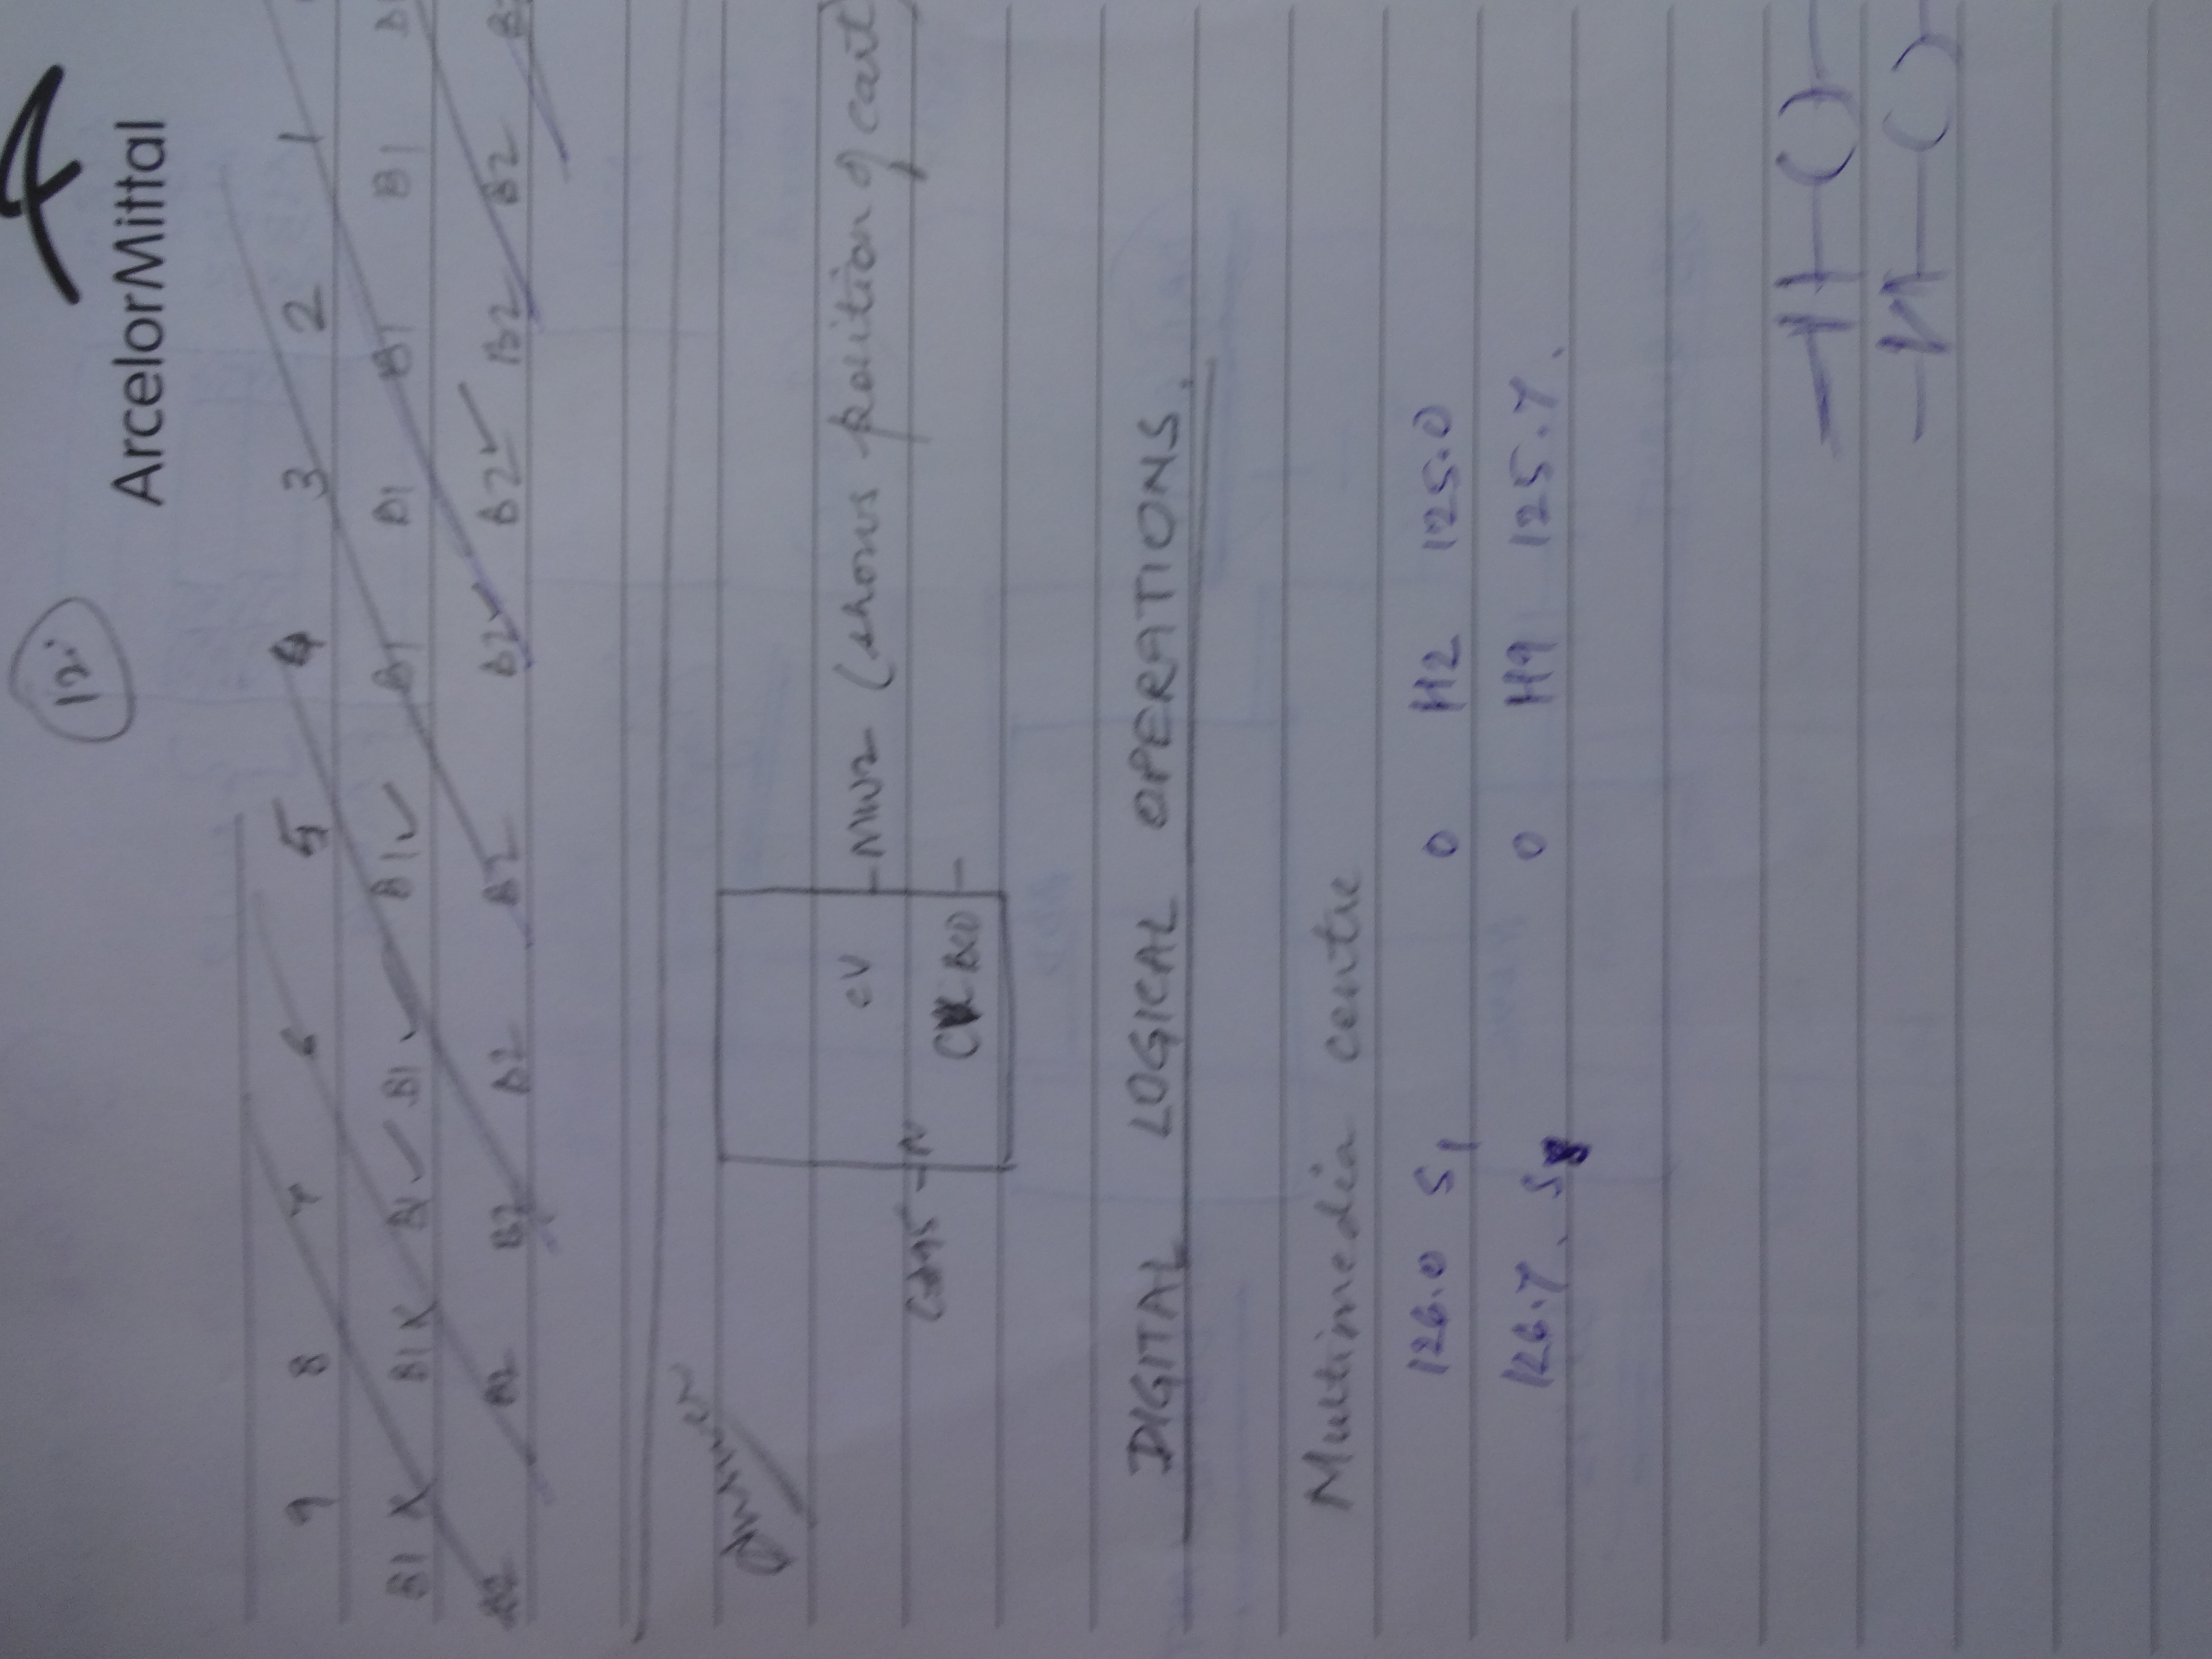 12.
ArcelorMittal
9 8 7 6 5 4 3 2 1
B1 X B1 X B1 ✓ B1 ✓ B1 ✓ B1 B1 B1 B1
B2 B2 B2 B2 B2 B2 ✓ B2 ✓ B2 B2
CV MW2 (shows position of cart
N BCD
DIGITAL LOGICAL OPERATIONS.
Multimedia centre
126.0 S1 0 H2 125.0
126.7 S8 0 H9 125.7